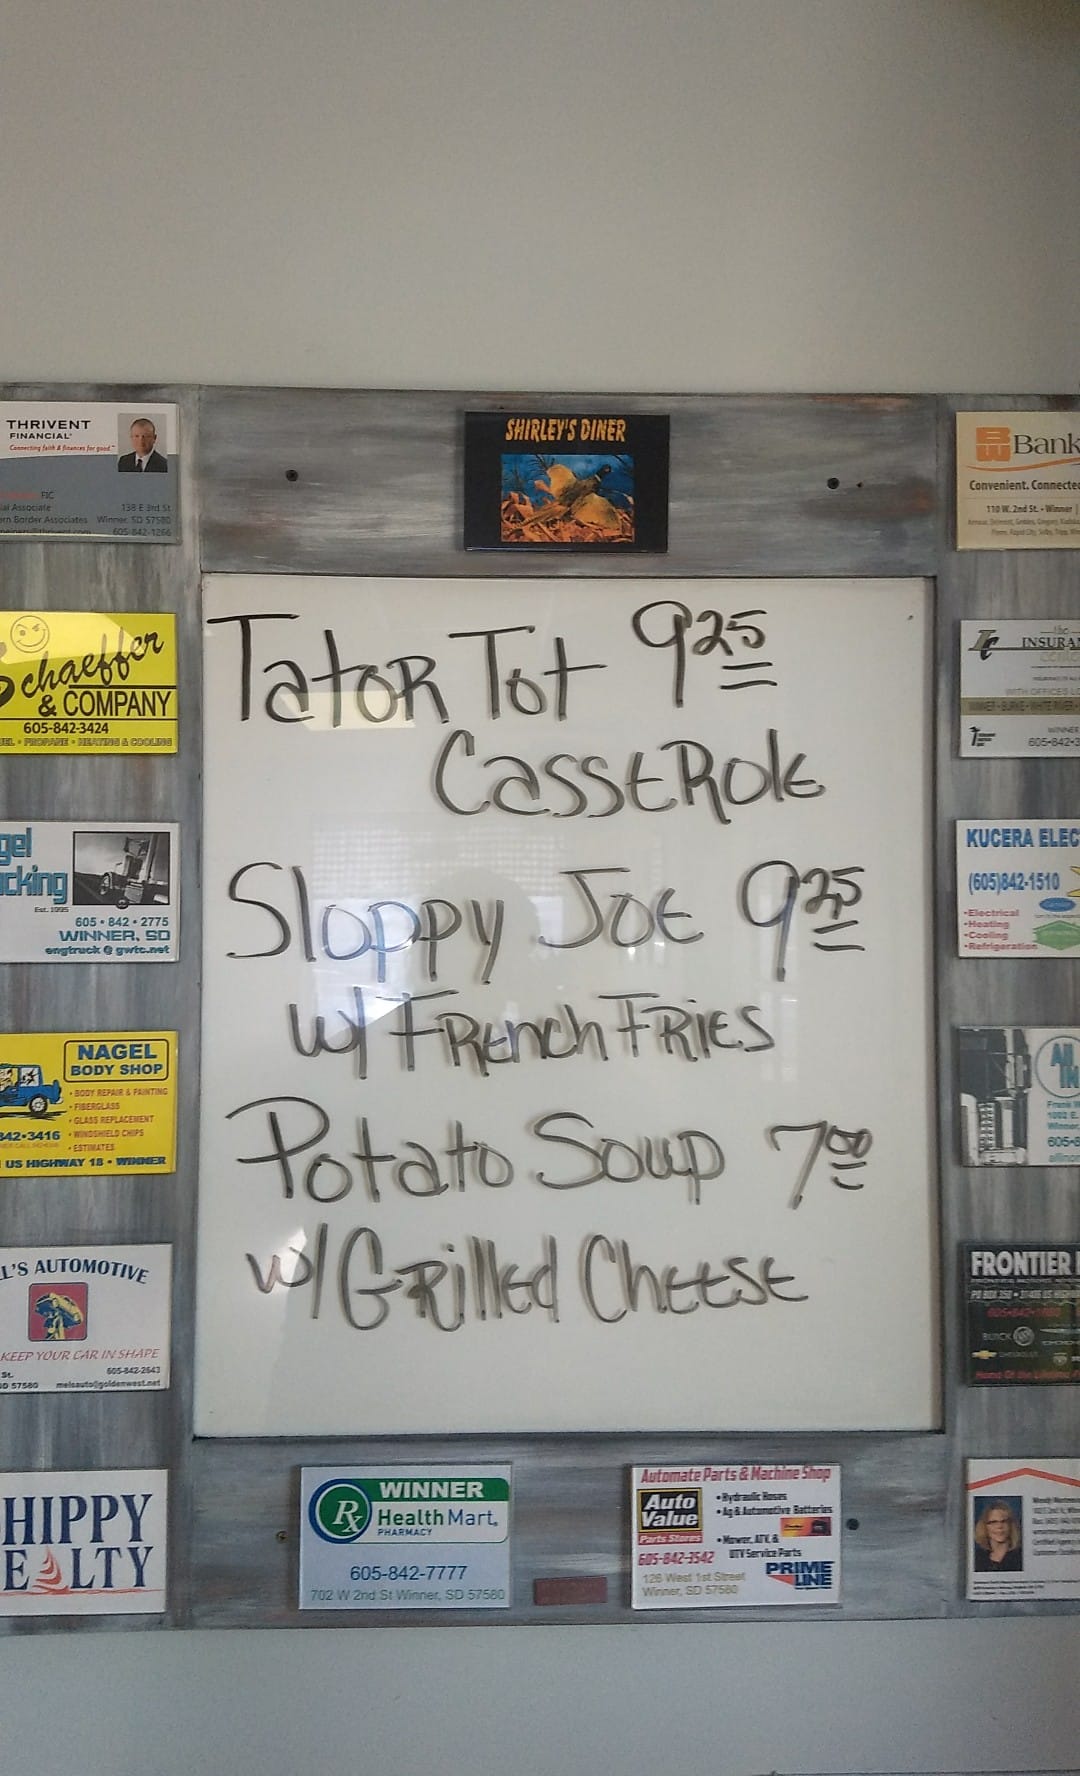 SHIRLEY'S DINER
Tator Tot 9 25
Casserole
Sloppy Joe 9 25
w/ French Fries
Potato Soup 7 00
w/ Grilled Cheese
THRIVENT
FINANCIAL
Connecting faith & finances for good.
FIC
Associate
138 E 3rd St
Border Associates
Winner, SD 57580
605-842-1266
Schaeffer
& COMPANY
605-842-3424
PROPANE • HEATING & COOLING
Est. 1995
605 • 842 • 2775
WINNER, SD
engtruck @ gwtc.net
NAGEL
BODY SHOP
• BODY REPAIR & PAINTING
• FIBERGLASS
• GLASS REPLACEMENT
• WINDSHIELD CHIPS
• ESTIMATES
842•3416
US HIGHWAY 18 • WINNER
L'S AUTOMOTIVE
KEEP YOUR CAR IN SHAPE
St.
605-842-2643
SD 57580
melsauto@goldenwest.net
HIPPY
EALTY
WINNER
Rx
Health Mart.
PHARMACY
605-842-7777
702 W 2nd St Winner, SD 57580
Automate Parts & Machine Shop
Auto
Value
Parts Stores
• Hydraulic Hoses
• Ag & Automotive Batteries
• Mower, ATV, &
UTV Service Parts
605-842-3542
126 West 1st Street
Winner, SD 57580
PRIME
LINE
BW
Bank
Convenient. Connected
110 W. 2nd St. • Winner
the
INSURAN
WITH OFFICES
WINNER • BURKE • WHITE RIVER •
WINNER
605•842•3
KUCERA ELEC
(605)842-1510
•Electrical
•Heating
•Cooling
•Refrigeration
All
IN
Frank
Winner,
FRONTIER
BUICK
CHEVROLET